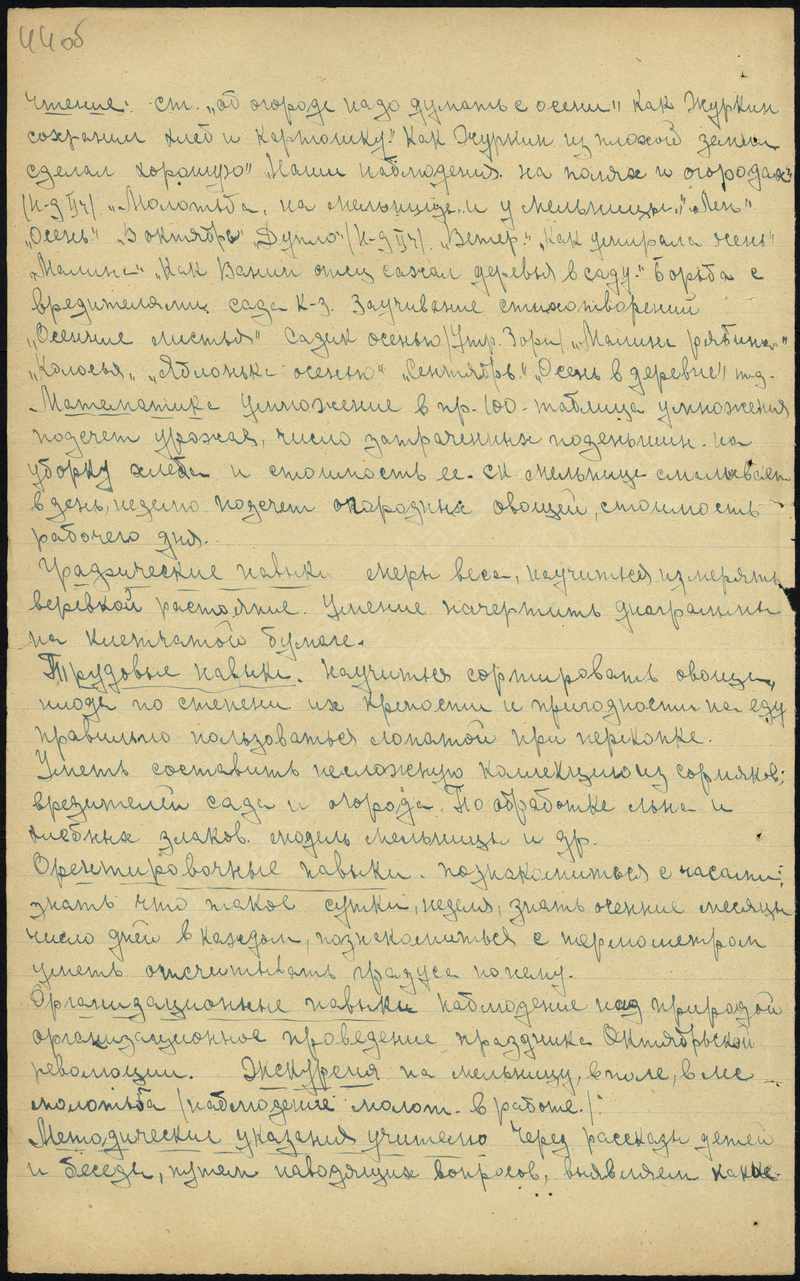 44об
Чтение: ст. „об огороде надо думать с осени" Как Журкин
сохранил хлеб и картошку." Как Журкин из плохой земли
сделал хорошую" „Наши наблюдения на полях и огородах"
/Н-д II ч/ „Молотьба, на мельнице и у мельницы." „Лен"
„Осень" „В октябре" „Дупло" /Н-д II ч/. „Ветер." „Как умирала осень"
„Малина" „Как Ванин отец сажал деревья в саду." Борьба с
вредителями сада к-з. Заучивание стихотворений
„Осенние листья" Садик осенью /Утр. Зори/ „Малина рябина"
„Колосья„ „Яблонька осенью" „Сентябрь." „Осень в деревне" и т.д.
Математика Умножение в пр. 100 - таблица умножения
подсчет урожая, число затраченных поденьшин на
уборку хлеба и стоимость ее. мельница смалывает
в день, неделю подсчет огородных овощей, стоимость
рабочего дня.
Графические навыки меры веса, научиться измерять
веревкой растояние. Умение начертить диаграммы
на клетчатой бумаге.
Трудовые навыки. Научиться сортировать овощи,
плоды по степени их крепости и пригодности на еду
правильно пользоваться лопатой при перкопке.
Уметь составить несложную коллекцию из сорняков;
вредителей сада и огорода. По обработке льна и
хлебных злаков. модель мельницы и др.
Орентировочные навыки. познакомиться с часами;
знать что такое сутки, неделя, знать осенние месяцы
число дней в каждом, познакомиться с термометром
уметь отсчитывать градуса по нему.
Организационные навыки наблюдение над природой
организационное проведение праздника Октябрьской
революции. Экскурсия на мельницу, в поле, в лес
молотьба /наблюдение молот. в работе./
Методические указания учителю Через рассказы детей
и беседы, путем наводящих вопросов, выявляем какие-